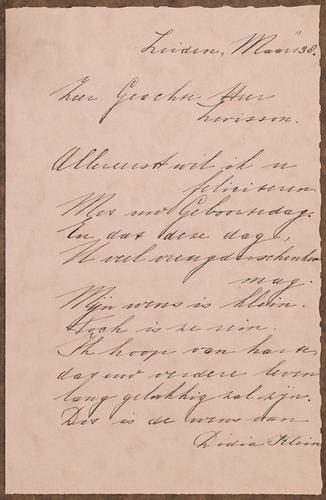 Leiden, Maart 38.
Zeer Geachte Heer
Levisson.
Allereerst wil ik u
feliciteren.
Met uw Geboortedag.
En dat deze dag,
U veel vreugd schenken
mag.
Mijn wens is klein.
Toch is ze rein.
Ik hoop van harte,
dat uw verdere leven
lang gelukkig zal zijn.
Dit is de wens van
Didia Klein